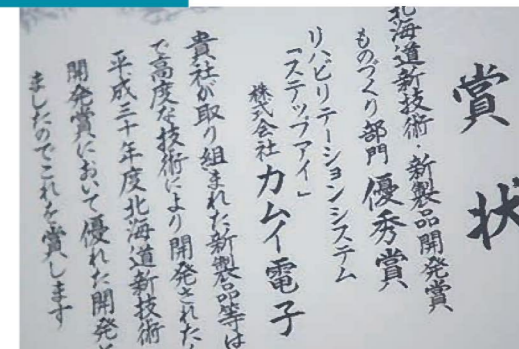 賞状
北海道新技術・新製品開発賞
ものづくり部門 優秀賞
リハビリテーションシステム
「ステップアイ」
株式会社 カムイ電子
貴社が取り組まれた新製品等は
で高度な技術により開発された
平成三十年度北海道新技術
開発賞において優れた開発
ましたのでこれを賞します